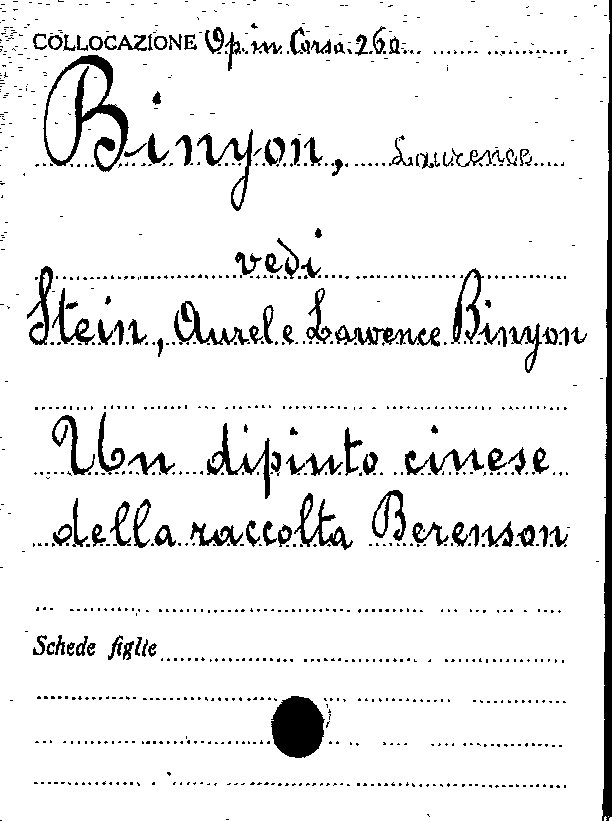 COLLOCAZIONE Op. in Corso. 260.
Binyon, Laurence
vedi
Stein, Aurel e Lawrence Binyon
Un dipinto cinese
della raccolta Berenson
Schede figlie